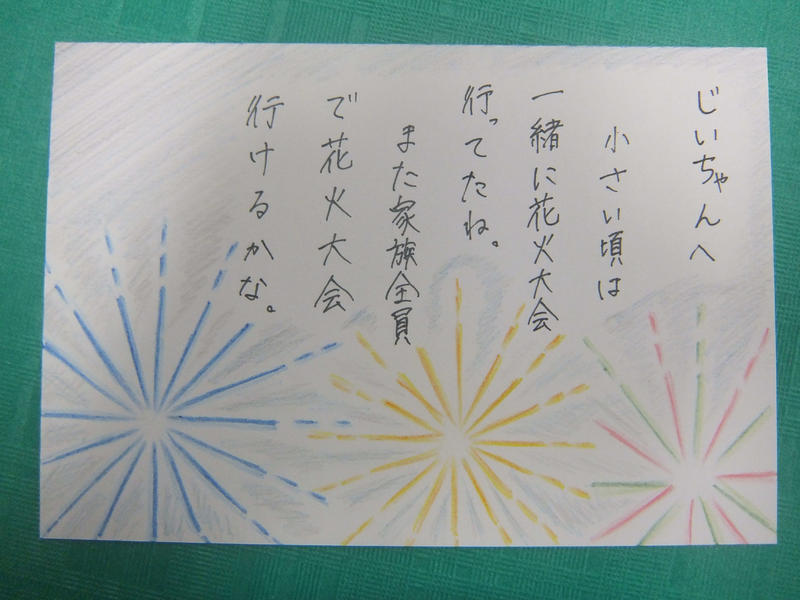 じいちゃんへ
小さい頃は
一緒に花火大会
行ってたね。
また家族全員
で花火大会
行けるかな。